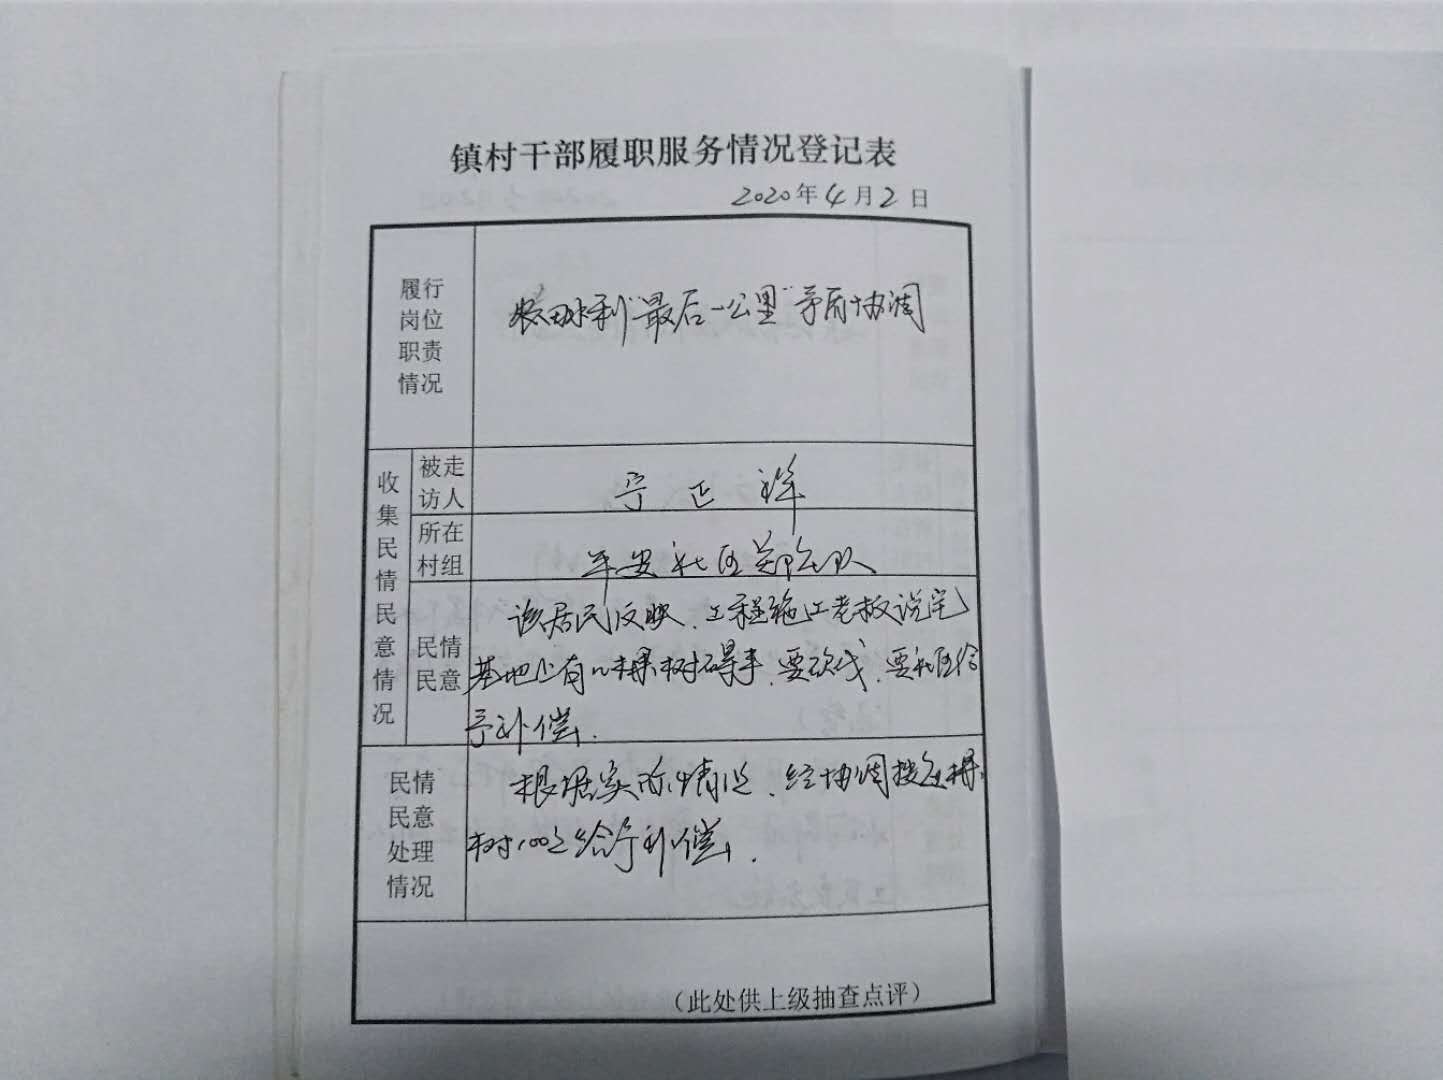 镇村干部履职服务情况登记表
2020年4月2日
履行
岗位
职责
情况
农田水利"最后一公里"矛盾协调
收集民情民意情况
被走
访人
宁正祥
所在
村组
平安社区郑院队
民情
民意
该居民反映、工程施工老板说宅
基地上有几棵树碍事、要砍伐、要社区给
予补偿.
民情
民意
处理
情况
根据实际情况、经协调按每棵
树100元给予补偿.
（此处供上级抽查点评）